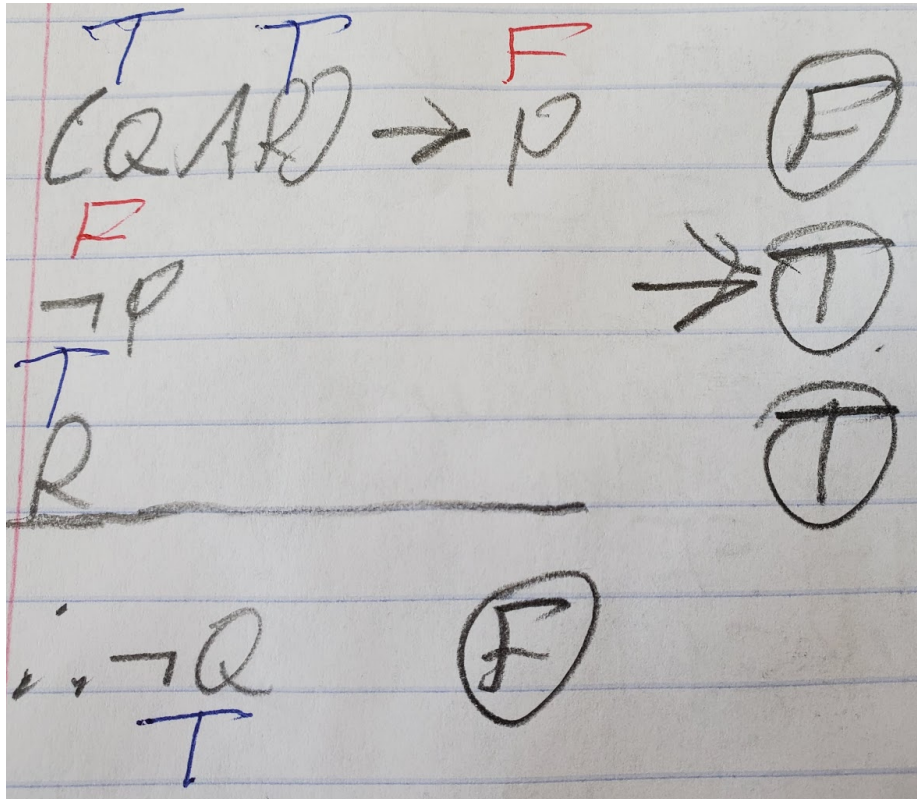 T T F
(Q∧R) → P F
F
¬P → T
T
R T
∴ ¬Q F
T